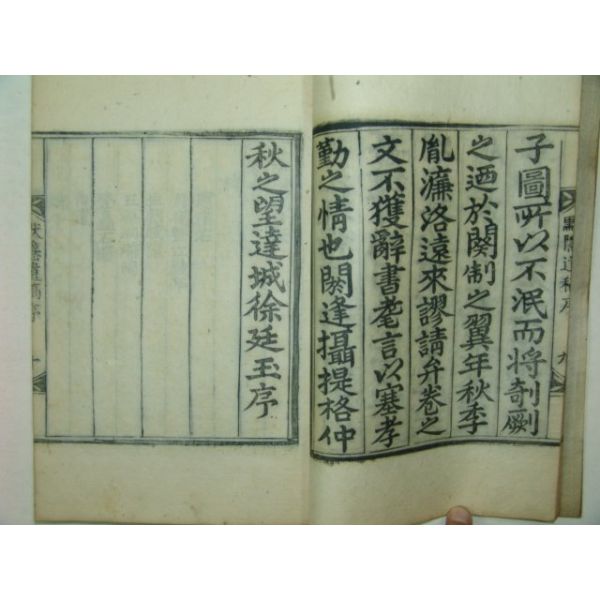 子圖所以不泯而將剞劂
之迺於闋制之翼年秋季
胤濂洛遠來謬請弁卷之
文不獲辭書耄言以塞孝
勤之情也閼逢攝提格仲
秋之望達城徐廷玉序